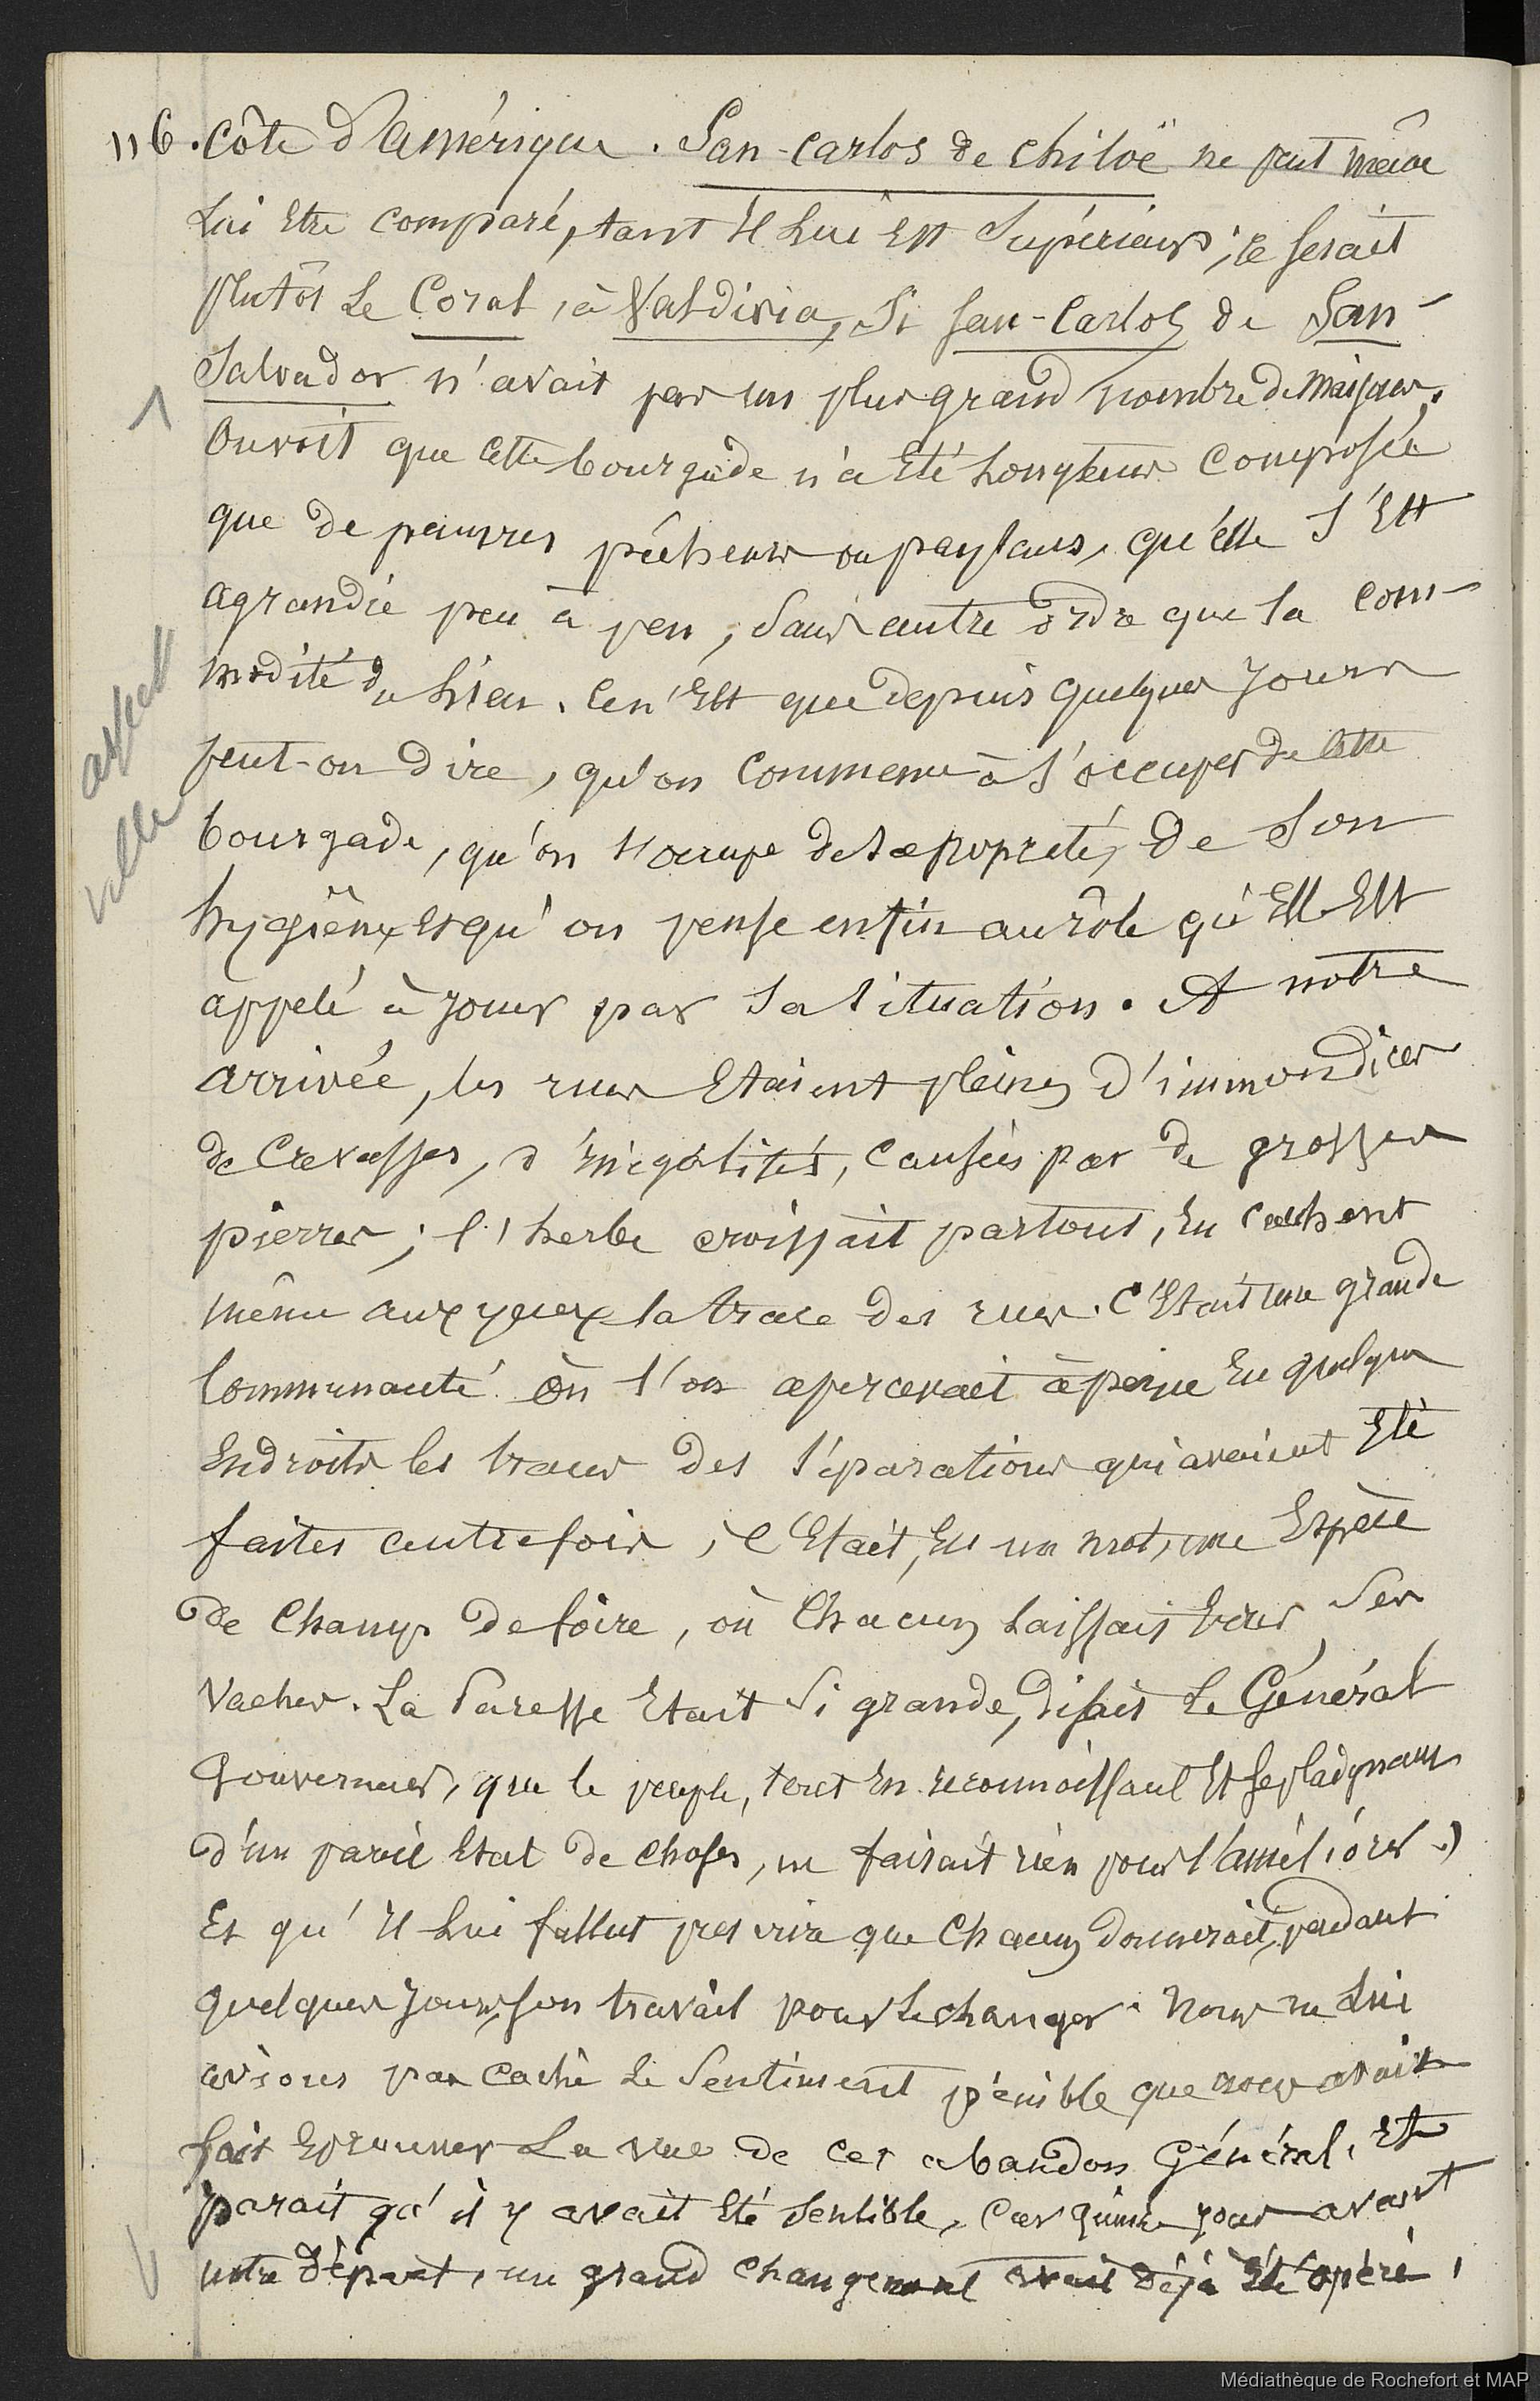 116. Côte d'amérique. San-Carlos de Chiloë ne peut même
Lui Etre comparé, tant Il Lui Est Supérieur; ce serait
plutôt Le Coral, à Valdivia, Si San-Carlos de San-
Salvador n'avait pas un plus grand nombre de maisons.
On voit que Cette bourgade n'a Eté Longtems Composée
que de pauvres pêcheurs ou paysans, qu'elle S'Est
agrandie peu à peu, Sans autre ordre que la com-
modité du Lieu. Ce n'Est que depuis quelques Jours
peut-on dire, qu'on Commence à S'occuper de Cette
bourgade, qu'on s'occupe de Sa propreté, de Son
hygiène, Et qu'on pense enfin au rôle qu'Elle Est
appelé à Jouer par Sa Situation. A notre
arrivée, les rues Etaient pleines d'immondices
de Crevasses, d'Inégalités, Causées par de grosses
pierres; l'herbe croissait partout, En cachant
même aux yeux la trace des rues. C'Etait une grande
Communauté où l'on apercevait à peine En quelques
Endroits les traces des séparations qui avaient Eté
faites autrefois, C'Etait, En un mot, une Espèce
de Champ de foire, où Chacun Laissait Errer Ses
Vaches. La Paresse Etait Si grande, disait Le Général
Gouverneur, que le peuple, tout En reconnaissant Et Se plaignant
d'un pareil Etat de choses, ne faisait rien pour l'améliorer,
Et qu'Il Lui fallut prescrire que Chacun donnerait, pendant
quelques Jours, Son travail pour Le changer. Nous ne Lui
avions pas Caché Le Sentiment pénible que nous avait
fait Eprouver La Vue de Cet abandon Général. Il
parait qu'il y avait Eté Sensible, Car quinze jours avant
notre Départ, un grand Changement avait Déjà Eté opéré,
aspect
ville
Médiathèque de Rochefort et MAP